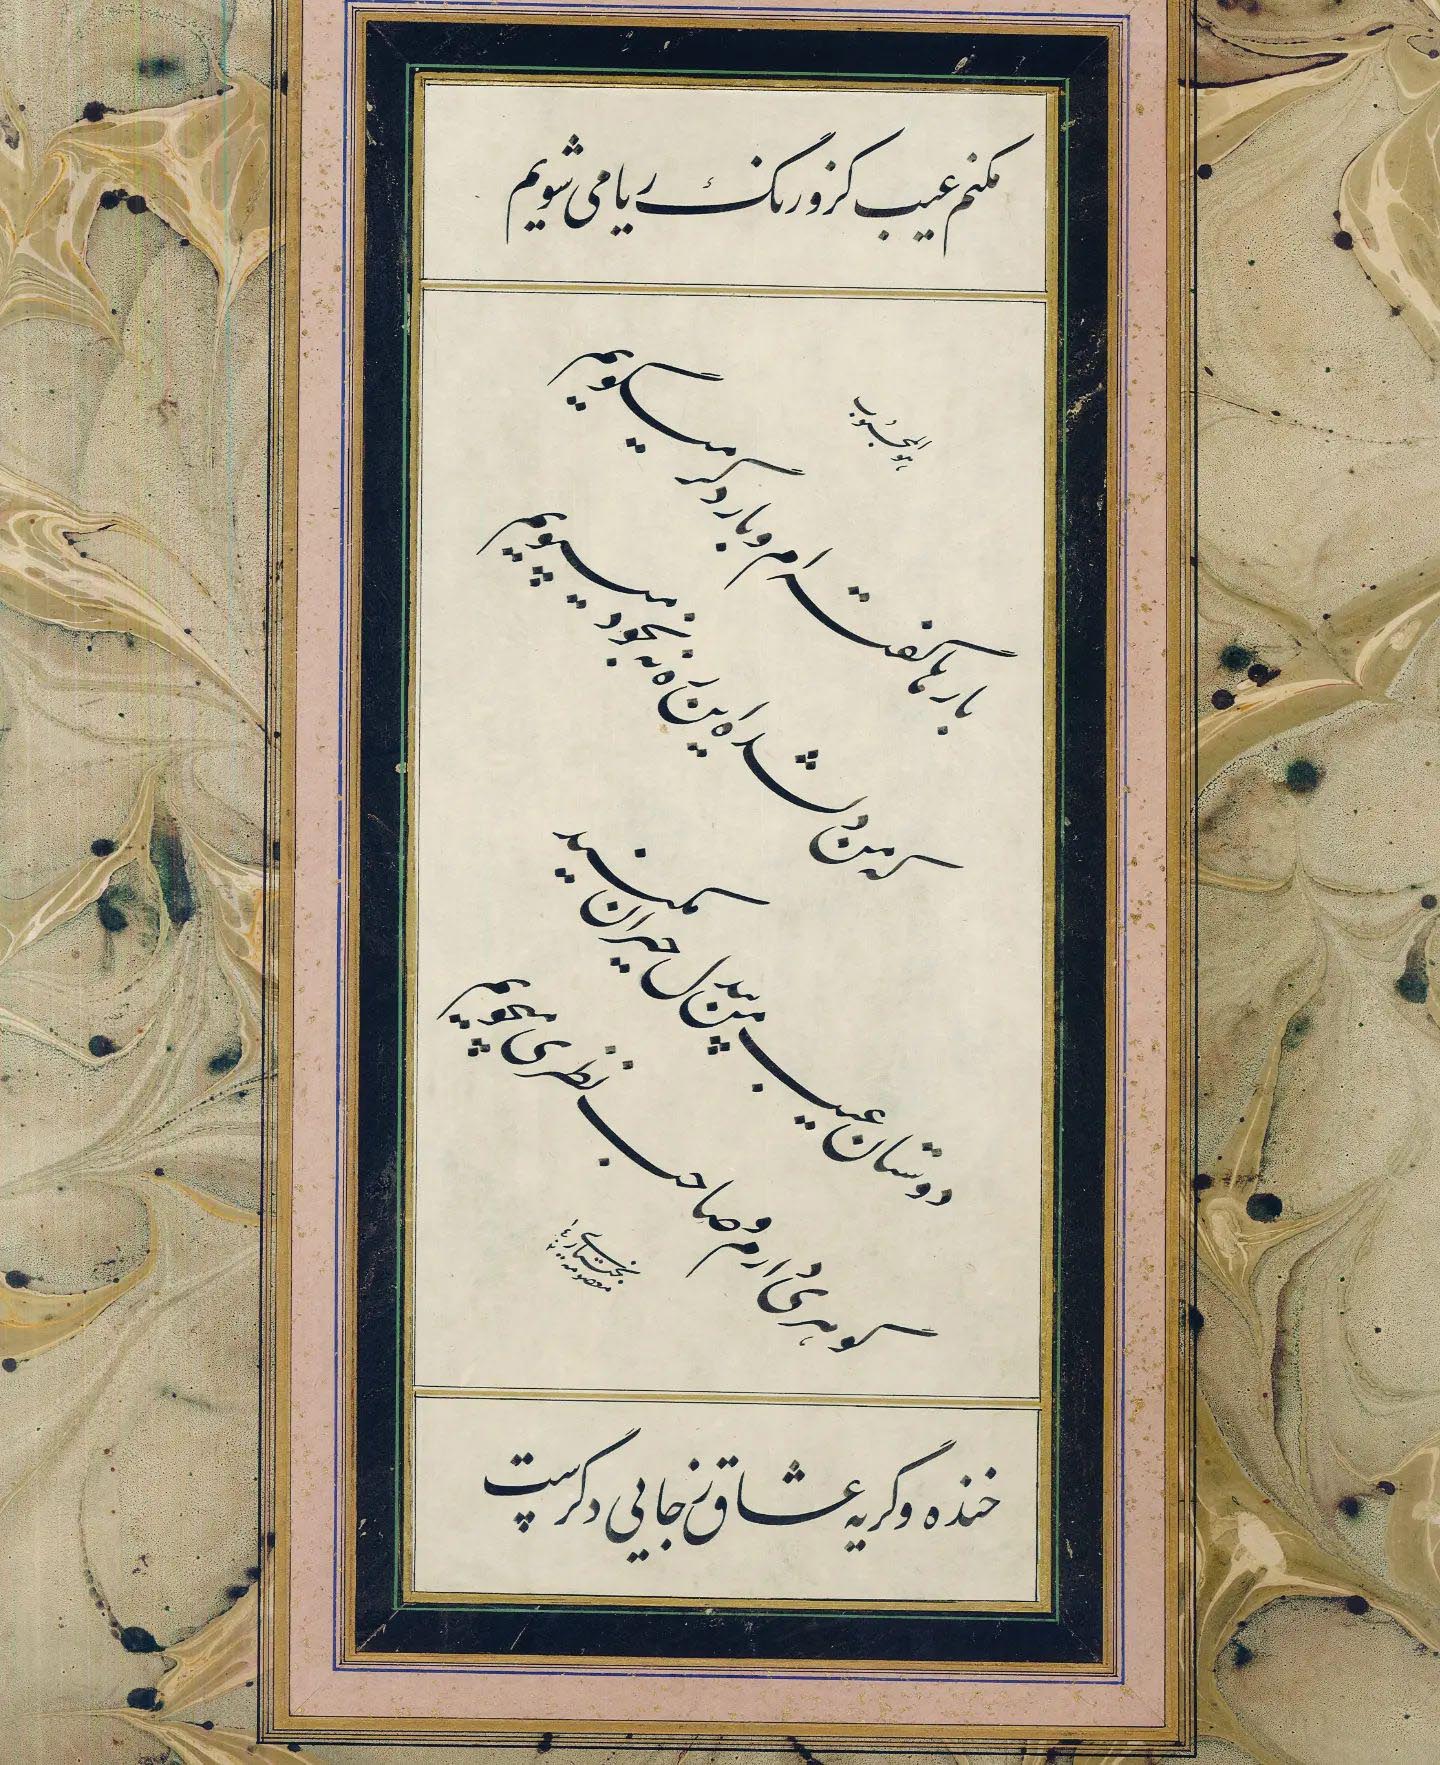 مکنم عیب کزو رنگ ریا می شویم
هو المحبوب
بارها گفته ام و بار دگر میگویم
که من دلشده این ره نه بخود میپویم
دوستان عیب من بیدل حیران مکنید
گوهری دارم و صاحب نظری میجویم
معصومه بختیاری
خنده و گریه عشاق ز جایی دگرست